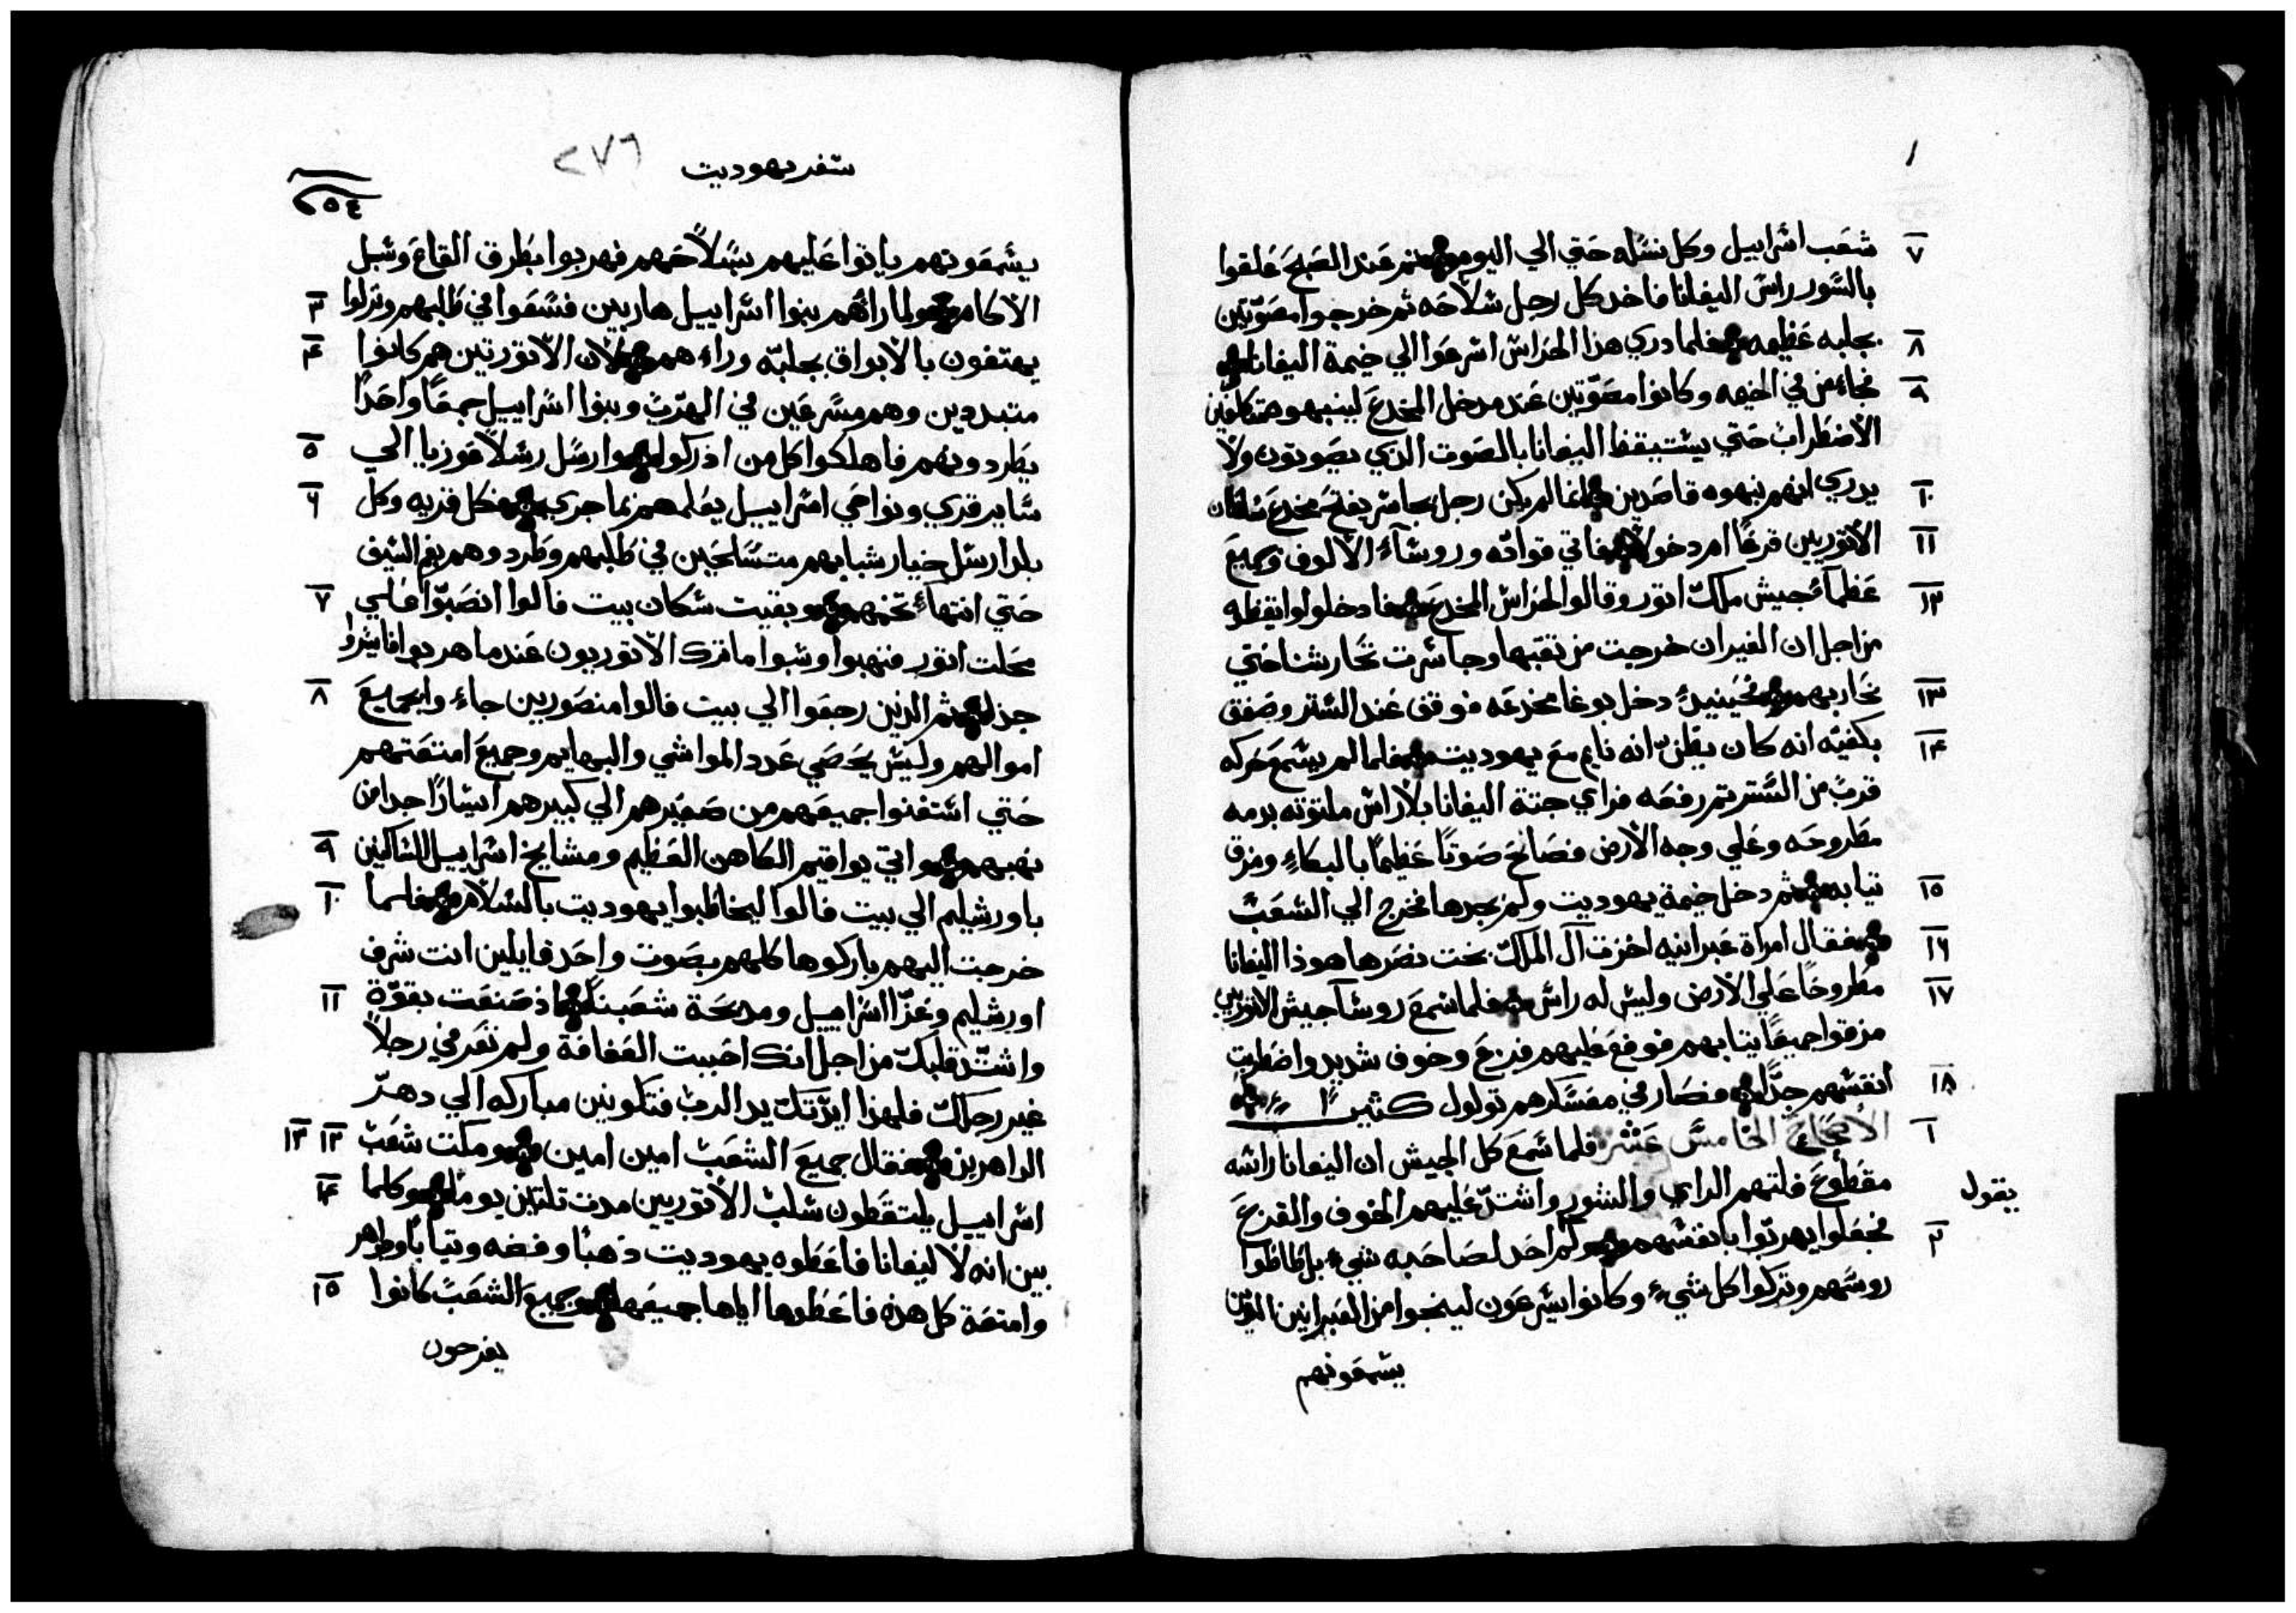 ٧ شعب اسراييل وكل نسله حتي الي اليوم ثم عند الصبح علقوا
بالسور راس اليفانا فاخد كل رجل سلاحه ثم خرجوا مصوتين
٨ بجلبه عظيمه فلما دري هذا الحراس اسرعوا الي خيمة اليفانا
٩ فجاء من في الخيمه وكانوا مصوتين عند مدخل المخدع لينبهوه متكلفين
الاضطراب حتي يستيقظ اليفانا بالصوت الذي يصوتون ولا
١٠ يدري انهم نبهوه قاصدين فلم يكن رجل يجاسر يفتح مخدع سلطان
١١ الاتوريين قرعًا ام دخولا فاتي قواده وروسآء الالوف وجميع
١٢ عظمآء جيش ملك اتور وقالوا لحراس المخدع فادخلوا وايقظوه
من اجل ان الفيران خرجت من نقبها وجاسرت تحارشنا حتي
١٣ نحاربهم فحينيدٍ دخل بوغا مخدعه فوقف عند الستر وصفق
١٤ بكفيه انه كان يظنّ انه نايم مع يهوديت فلما لم يسمع حركه
قرب من الستر تم رفعه فراي جتة اليفانا بلا راس ملتوته بدمه
مطروحه وعلي وجه الارض فصاح صوتًا عظيمًا بالبكاءِ ومزق
١٥ تيابه ثم دخل خيمة يهوديت ولم يجدها فخرج الي الشعب
١٦ فقال امراة عبرانيه اخزت آل الملك بخت نصرها هوذا اليفانا
١٧ مطروحًا علي الارض وليس له راس فلما سمع روسآ جيش الاتوريين
مزقوا جميعًا تيابهم فوقع عليهم فزع وخوف شديد واضطربت
١٨ انفسهم جدًا فصار في معسكرهم تولول كثيرًا
١ الاصحاح الخامس عشر فلما سمع كل الجيش ان اليفانا راسه
مقطوع فلتهم الراي والشور واشتدّ عليهم الخوف والفزع
يقول
٢ فجعلوا يهربوا بانفسهم ولم احد لصاحبه شيء بل طاطوا
روسهم وتركوا كل شيء وكانوا يسرعون لينجوا من العبرانيين الذين
يسمعونهم
سفر يهوديت ٢٧٦
٢٥٤
يسمعونهم ياتوا عليهم بسلاحهم فهربوا بطرق القاع وسبل
الاكام ولما راهم بنوا اسراييل هاربين فسعوا في طلبهم ونزلوا ٣
يهتفون بالابواق بجلبه وراءهم لان الاتوريين هم كانوا ٤
متبددين وهم مسرعين في الهرب وبنوا اسراييل جمعًا واحدًا
يطردونهم فاهلكوا كل من ادركوا وارسل رسلا عوزيا الي ٥
ساير قري ونواحي اسراييل يعلمهم بما جري فكل قريه وكل ٦
بلد ارسل خيار شبابهم متسلحين في طلبهم وطردوهم بفم السيف
حتي انتهاء تخمهم وبقيت سكان بيت فالوا انصبّوا علي ٧
محلت اتور فنهبوا وسبوا ما ترك الاتوريون عندما هربوا فايسروا
جدا ثم الذين رجعوا الي بيت فالوا منصورين جاءوا بجميع ٨
اموالهم وليس يحصي عدد المواشي والبهايم وجميع امتعتهم
حتي استغنوا جميعهم من صغيرهم الي كبيرهم ايسارًا جدا من
نهبهم واتي يواقيم الكاهن العظيم ومشايخ اسراييل الساكنين ٩
باورشليم الي بيت فالوا ليخاطبوا يهوديت بالسلام فلما ١٠
خرجت اليهم باركوها كلهم بصوت واحد قايلين انت شرف
اورشليم وعزّ اسراييل ومدحة شعبنا اذ صنعت بقوّة ١١
واشتدّ قلبك من اجل انك احببت العفافة ولم تعرفي رجلاً
غير رجلك فلهذا ايدّتك يد الرب فتكونين مباركه الي دهرّ
الداهرين فقال جميع الشعب امين امين ومكت شعب ١٢ ١٣
اسراييل يلتقطون سلب الاتوريين مدت تلتين يوما وكلما ١٤
بين انه لاليفانا فاعطوه يهوديت ذهبًا وفضه وتيابًا وجواهر
وامتعة كل هذه فاعطوها اياها جميعها وجميع الشعب كانوا ١٥
يفرحون